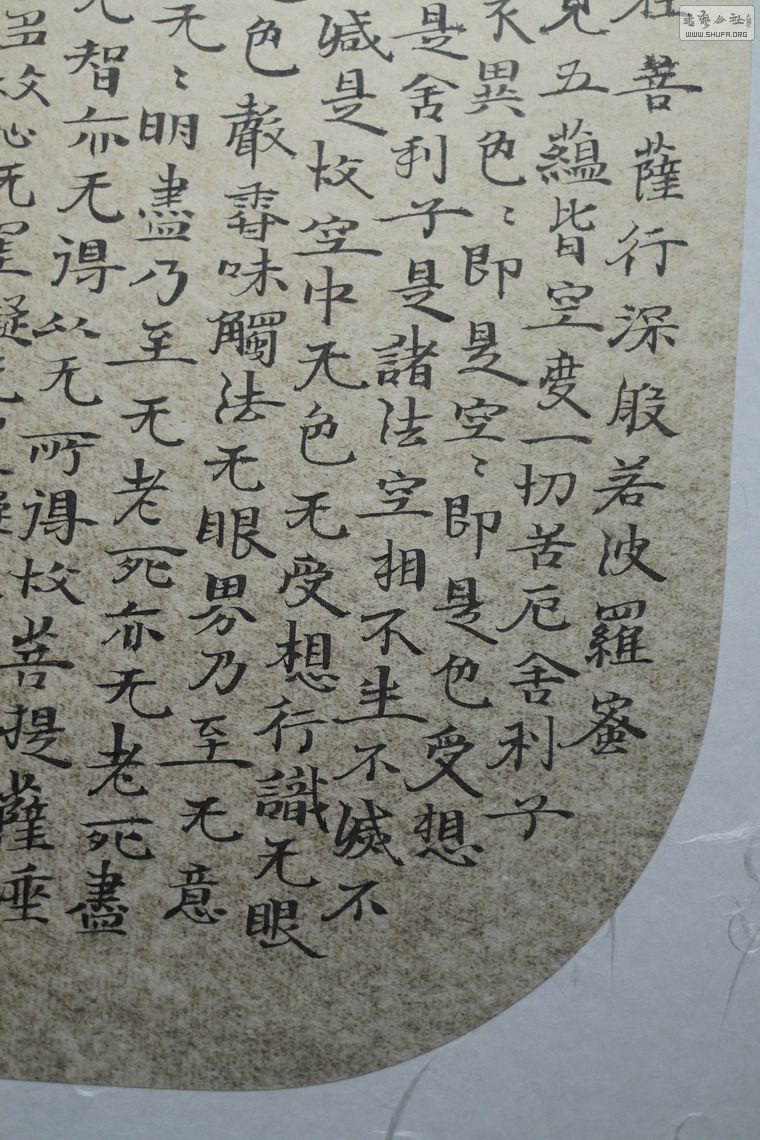 菩薩行深般若波羅蜜
見五蘊皆空度一切苦厄舍利子
不異色〻即是空〻即是色受想
是舍利子是諸法空相不生不滅不
滅是故空中无色无受想行識无眼
色聲香味觸法无眼界乃至无意
无〻明盡乃至无老死亦无老死盡
无智亦无得以无所得故菩提薩埵
故心无罣礙无
書藝公社
WWW.SHUFA.ORG